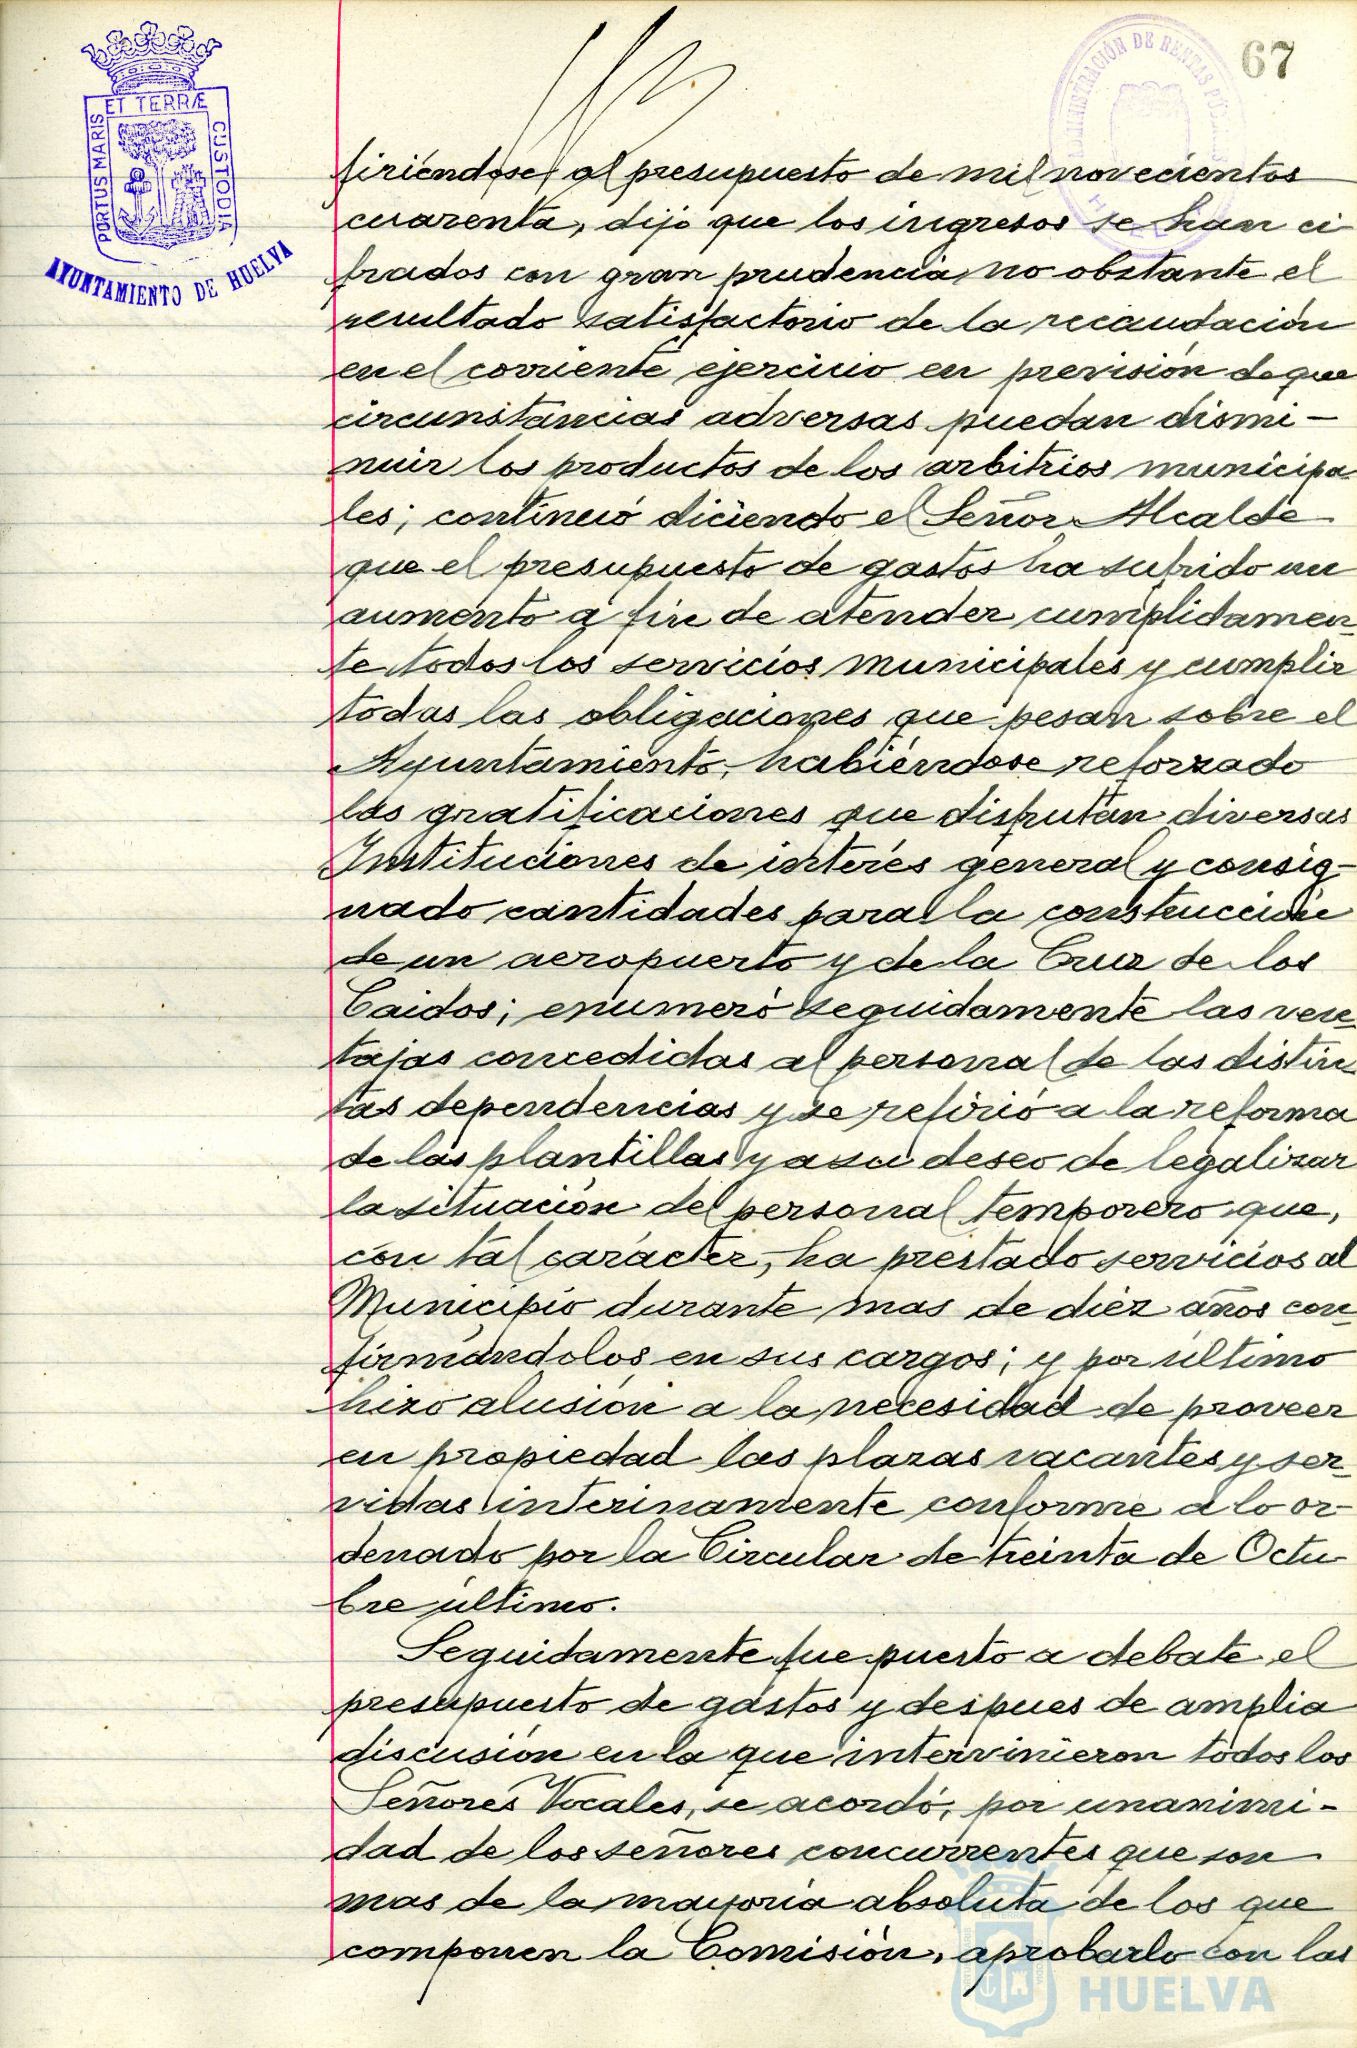 67
ADMINISTRACIÓN DE RENTAS PÚBLICAS
PORTUS MARIS ET TERRÆ CUSTODIA
AYUNTAMIENTO DE HUELVA
firiéndose al presupuesto de mil novecientos
cuarenta, dijo que los ingresos se han ci
frados con gran prudencia no obstante el
resultado satisfactorio de la recaudación
en el corriente ejercicio en previsión de que
circunstancias adversas puedan dismi-
nuir los productos de los arbitrios municipa
les; continuó diciendo el Señor Alcalde
que el presupuesto de gastos ha sufrido un
aumento a fin de atender cumplidamen-
te todos los servicios municipales y cumplir
todas las obligaciones que pesan sobre el
Ayuntamiento, habiéndose reforzado
las gratificaciones que disfrutan diversas
Instituciones de interés general y consig-
nado cantidades para la construcción
de un aeropuerto y de la Cruz de los
Caidos; enumeró seguidamente las ven-
tajas concedidas al personal de las distin-
tas dependencias y se refirió a la reforma
de las plantillas y a su deseo de legalizar
la situación del personal temporero que,
con tal carácter, ha prestado servicios al
Municipio durante mas de diez años con-
firmándolos en sus cargos; y por último
hizo alusión a la necesidad de proveer
en propiedad las plazas vacantes y ser-
vidas interinamente conforme a lo or-
denado por la Circular de treinta de Octu-
bre último.
Seguidamente fue puesto a debate el
presupuesto de gastos y despues de amplia
discusión en la que intervinieron todos los
Señores Vocales, se acordó, por unanimi-
dad de los señores concurrentes que son
mas de la mayoria absoluta de los que
componen la Comisión, aprobarlo con las
HUELVA